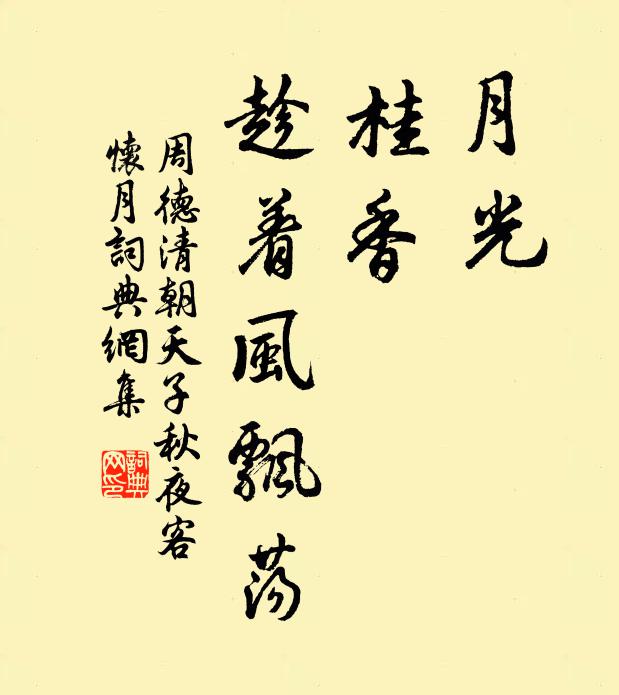 月光
桂香
趁着風飄蕩
周德清朝天子秋夜客
懷月詞典網集
詞典网印